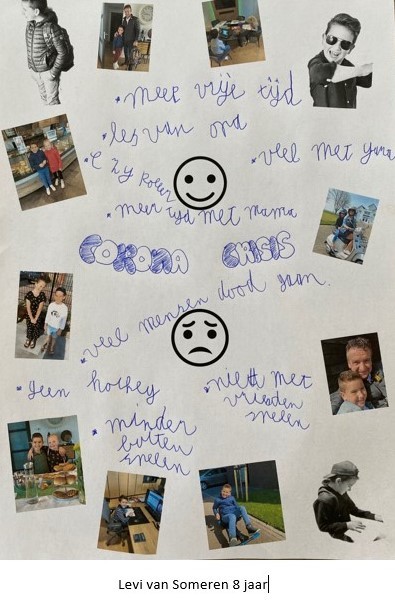 • meer vrije tijd
• les van opa
• veel met
• meer tijd met mama
CORONA CRISIS
• veel mensen dood gaan.
• geen hockey
• niet met
vrienden
spelen
• minder
buiten
spelen
Levi van Someren 8 jaar